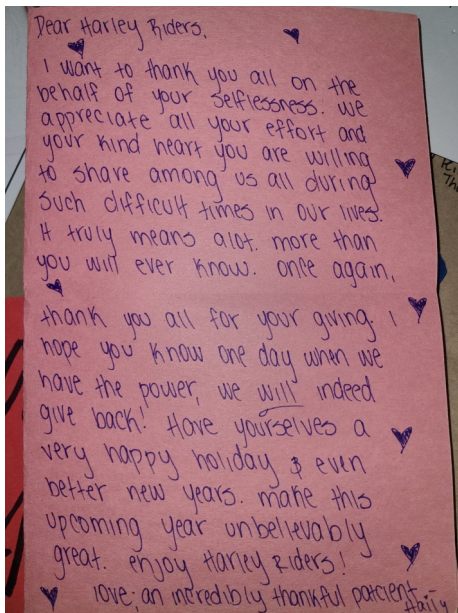 Dear Harley Riders,
I want to thank you all on the
behalf of your selflessness. We
appreciate all your effort and
your kind heart you are willing
to share among us all during
such difficult times in our lives.
It truly means alot. more than
you will ever know. once again,
thank you all for your giving. I
hope you know one day when we
have the power, we will indeed
give back! Have yourselves a
very happy holiday & even
better new years. make this
upcoming year unbelievably
great. enjoy Harley Riders!
love; an incredibly thankful patcient --